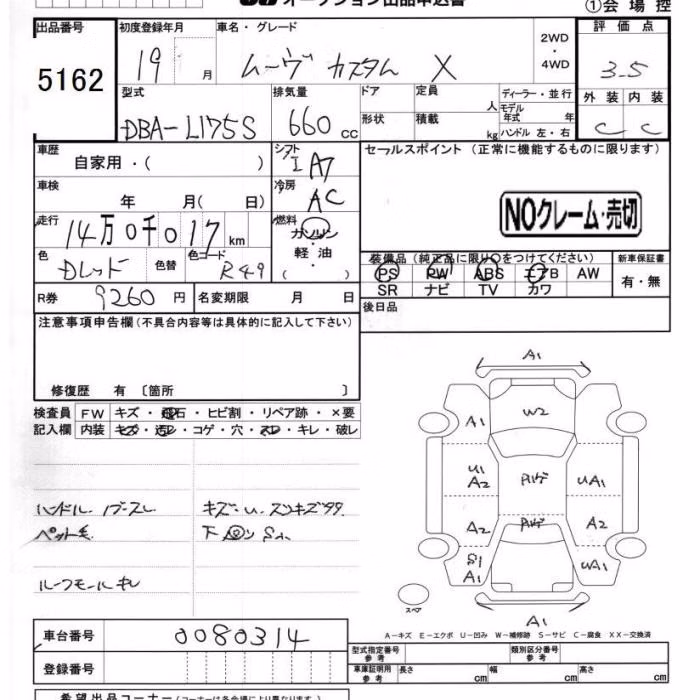 オークション出品申込書
①会場控
出品番号 初度登録年月 車名・グレード 評価点
5162 19 月 ムーヴ カスタム X 2WD・4WD 3.5
型式 排気量 ドア 定員 人 ディーラー・並行 外装 内装
DBA-L175S 660 cc 形状 積載 kg モデル年式 年 C C
ハンドル 左・右
車歴 自家用・( ) シフト I A7 セールスポイント (正常に機能するものに限ります)
車検 年 月( 日) 冷房 AC
NOクレーム・売切
走行 14万0千017km 燃料 ガソリン
軽油
( )
色 Dレッド 色替 色コード R49 装備品(純正品に限り○をつけてください) 新車保証書
PS PW ABS エアB AW 有・無
SR ナビ TV カワ
R券 9260円 名変期限 月 日 後日品
注意事項申告欄(不具合内容等は具体的に記入して下さい)
修復歴 有 〔箇所 〕
検査員 FW キズ・飛石・ヒビ割・リペア跡・×要
記入欄 内装 キズ・汚レ・コゲ・穴・スレ・キレ・破レ
ハンドル
ペット毛
ルーフモールキレ
A1
A1 W2
U1 A2 UA1
A2 A2
S1 A1 WA1
スペア
A1
A-キズ E-エクボ U-凹み W-補修跡 S-サビ C-腐食 XX-交換済
車台番号 0080314 型式指定番号 参考 類別区分番号 参考
登録番号 車庫証明用 参考 長さ cm 幅 cm 高さ cm
希望出品コーナー(コーナーは各会場により異なります。)